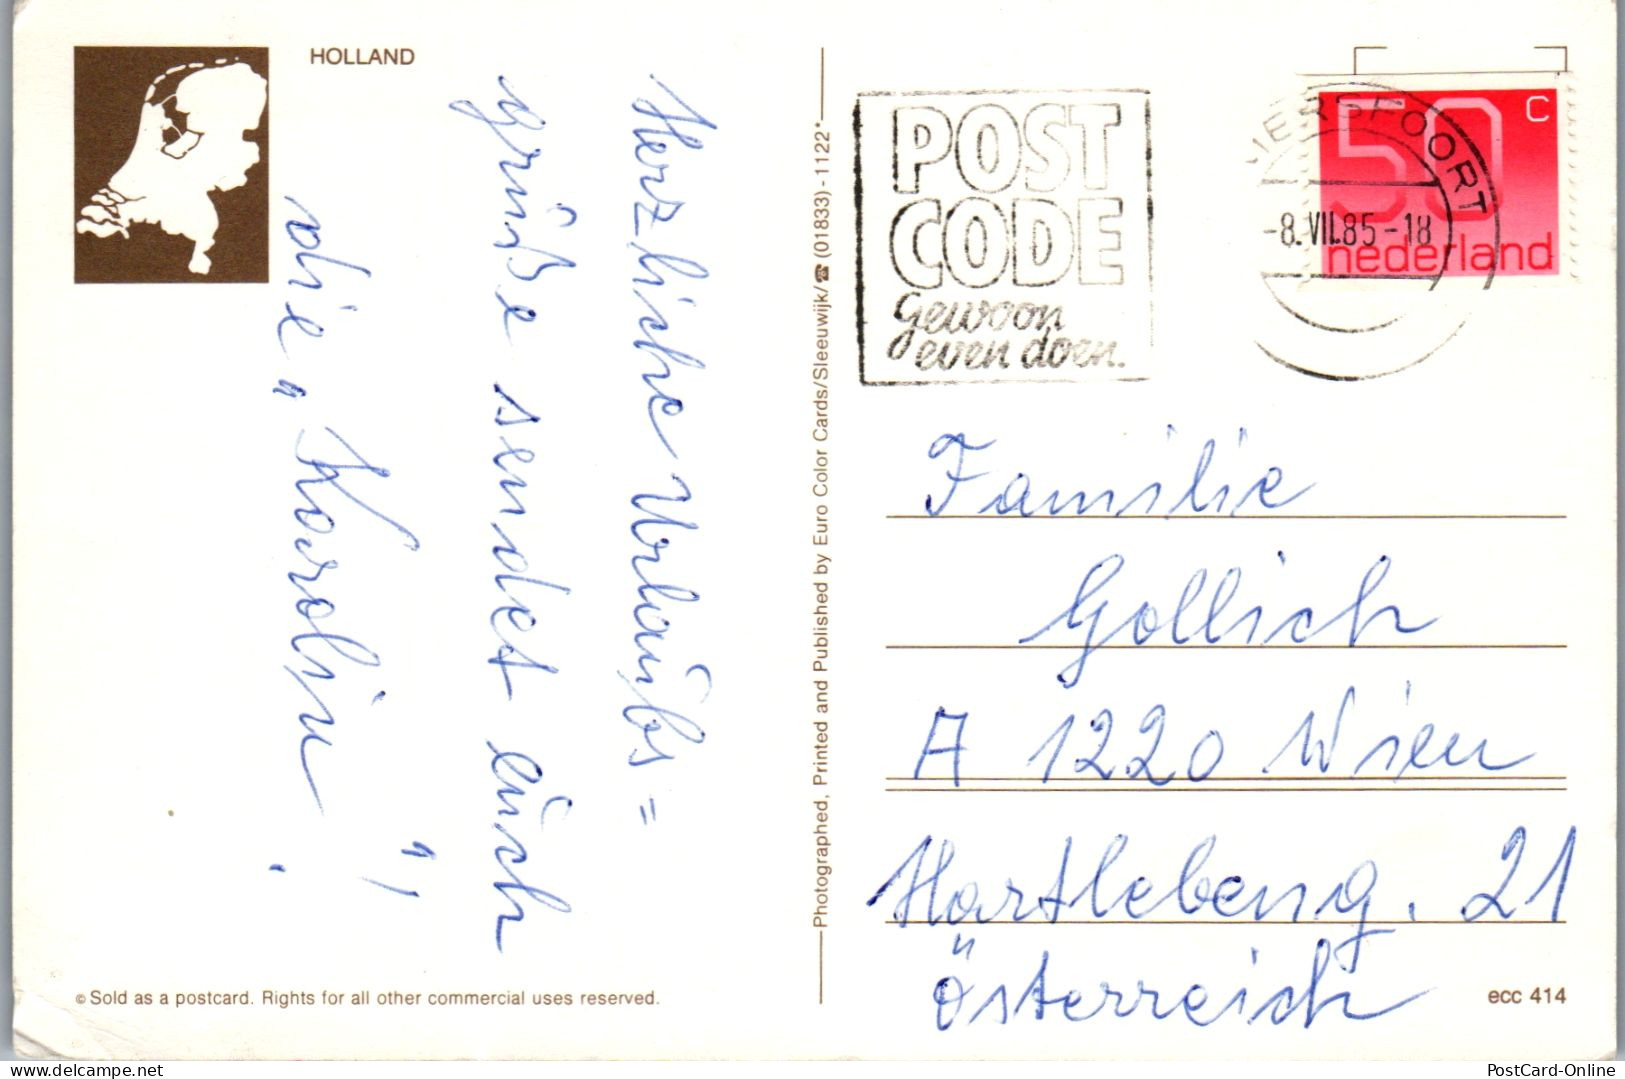 HOLLAND
Herzliche Urlaubs=
grüße sendet euch
die „Karolin“,
.
© Sold as a postcard. Rights for all other commercial uses reserved.
Photographed, Printed and Published by Euro Color Cards/Sleeuwijk/☎(01833)-1122*
POST
CODE
Gewoon
even doen.
50 c
nederland
MERSFOORT
-8.VII.85-18
Familie
Gollich
A 1220 Wien
Hartlebeng. 21
Österreich
ecc 414
menzel
PostCard-Online